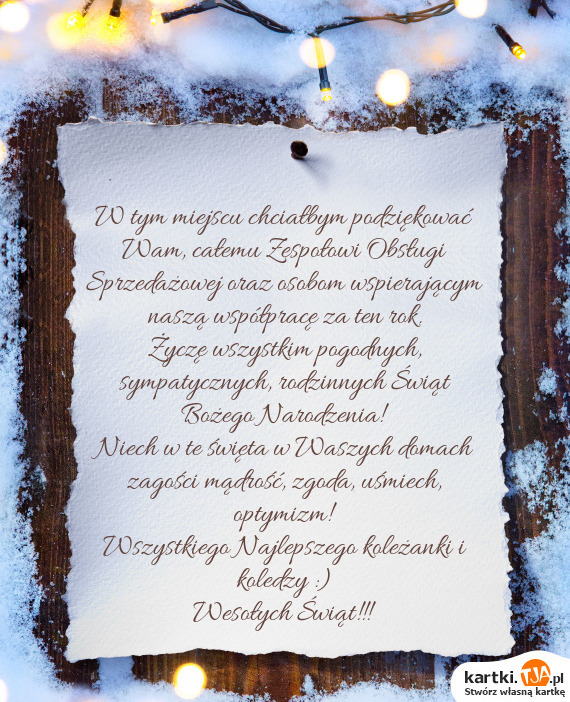 W tym miejscu chciałbym podziękować
Wam, całemu Zespołowi Obsługi
Sprzedażowej oraz osobom wspierającym
naszą współpracę za ten rok.
Życzę wszystkim pogodnych,
sympatycznych, rodzinnych Świąt
Bożego Narodzenia!
Niech w te święta w Waszych domach
zagości mądrość, zgoda, uśmiech,
optymizm!
Wszystkiego Najlepszego koleżanki i
koledzy :)
Wesołych Świąt!!!
kartki.TJA.pl
Stwórz własną kartkę